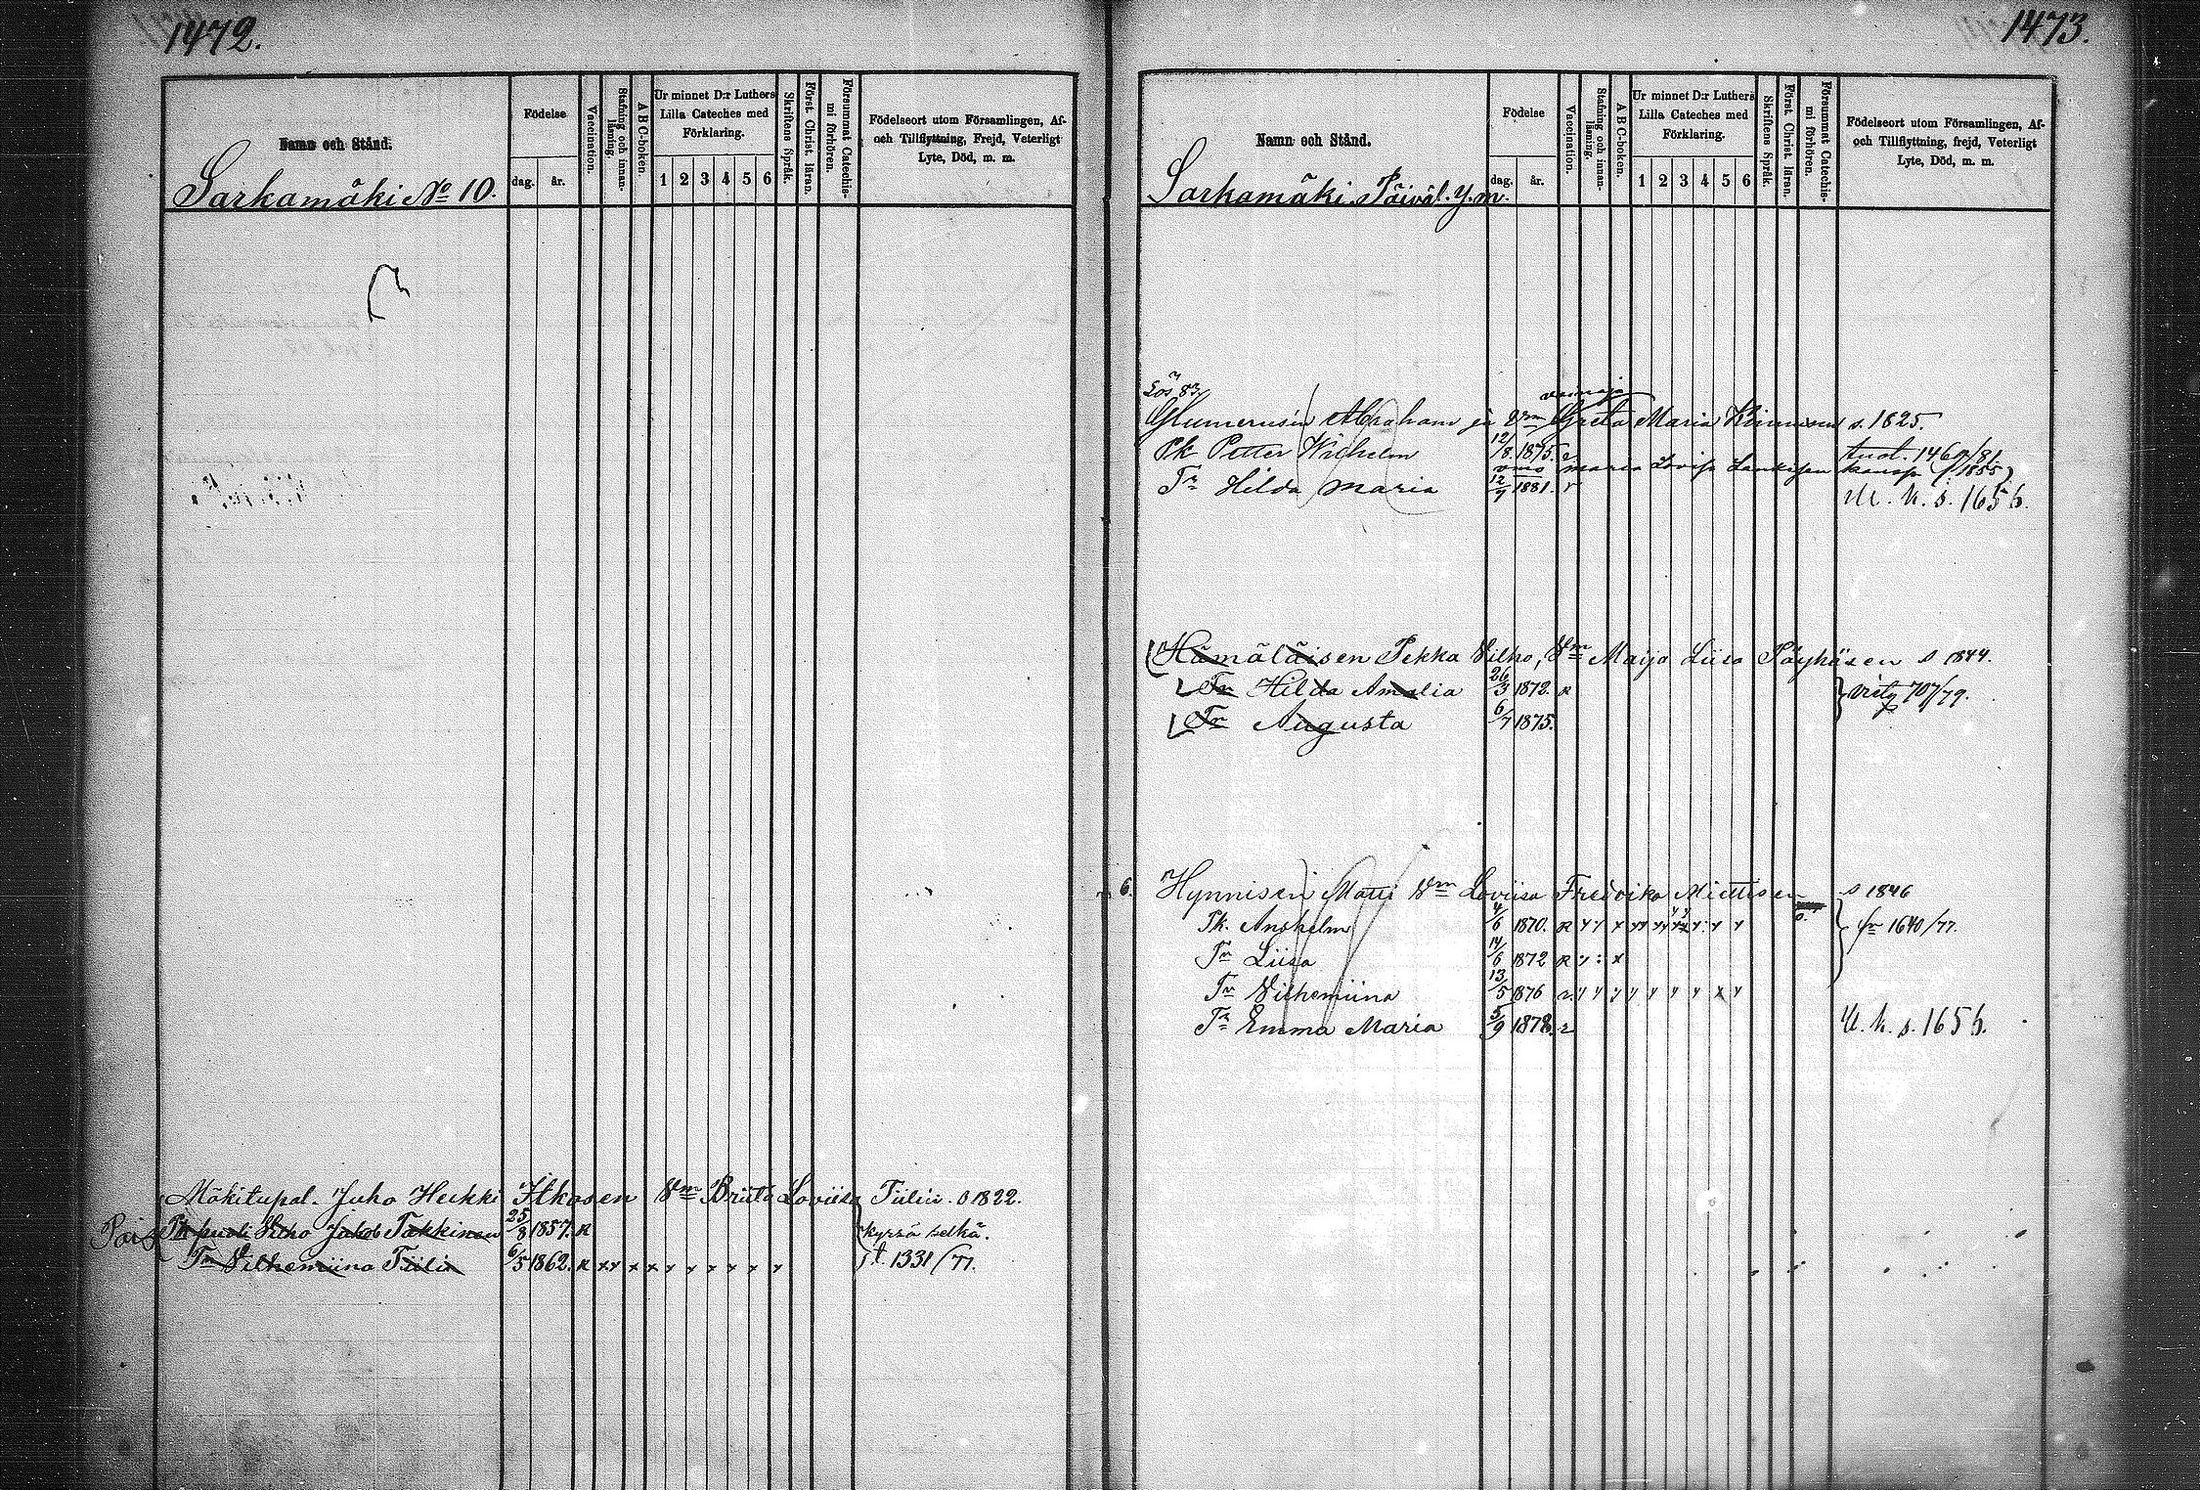 1472.
Namn och Stånd.
Sarkamäki No 10.
Födelse
dag. år.
Vaccination.
Stafning och innanläsning.
A B C-boken.
Ur minnet D:r Luthers Lilla Cateches med Förklaring.
1 2 3 4 5 6
Skriftens Språk.
Först. Christ. läran.
Försummat Catechismi förhören.
Födelseort utom Församlingen, Af- och Tillflyttning, Frejd, Veterligt Lyte, Död, m. m.
Mäkitupal. Juho Heikki Itkosen Vm Briita Loviisa Tiilin. s 1822.
Pois Pk puoli Juho Jakob Takkinen 25/8 1857. R kyrsä selkä.
Tr Vilhemiina Tiilin 6/5 1862. R x x x x x x x x x x t. 1331/77.
1473.
Namn och Stånd.
Sarkamäki Päiväl. y. m.
Födelse
dag. år.
Vaccination.
Stafning och innanläsning.
A B C-boken.
Ur minnet D:r Luthers Lilla Cateches med Förklaring.
1 2 3 4 5 6
Skriftens Språk.
Först. Christ. läran.
Försummat Catechismi förhören.
Födelseort utom Församlingen, Af- och Tillflyttning, frejd, Veterligt Lyte, Död, m. m.
Glumerusin Abraham ja Vm Greta Maria Kinnusen s. 1825.
Pk Petter Wilhelm 12/8. 1875. r tuol. 1460/81.
maria Lovisa
Tr Hilda Maria 12/9 1881. r U. k. s. 1656.
Hämäläisen Pekka Vilho, Vm Maija Liisa Pöyhösen s 1844.
Tr Hilda Amalia 26/3 1872. R 707/79.
Tr Augusta 6/7 1875.
6. Hynnisen Matti Vm Loviisa Fredrika Miettisen s 1846
Pk. Anshelm 4/6 1870. R 1640/77.
Tr Liisa 14/6 1872 R
Tr Vilhemiina 13/5 1876 r.
Tr Emma Maria 5/9 1878. r U. k. s. 1656.